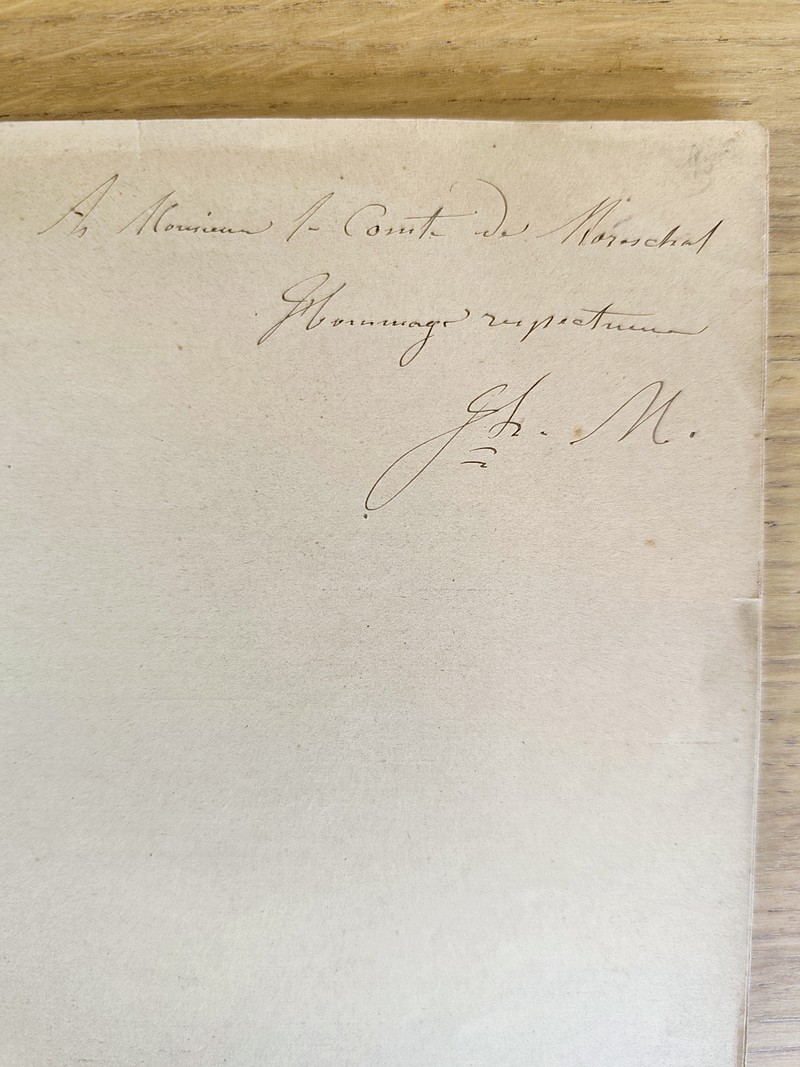 A Monsieur le Comte de Mareschal
Hommage respectueux
Ch. M.